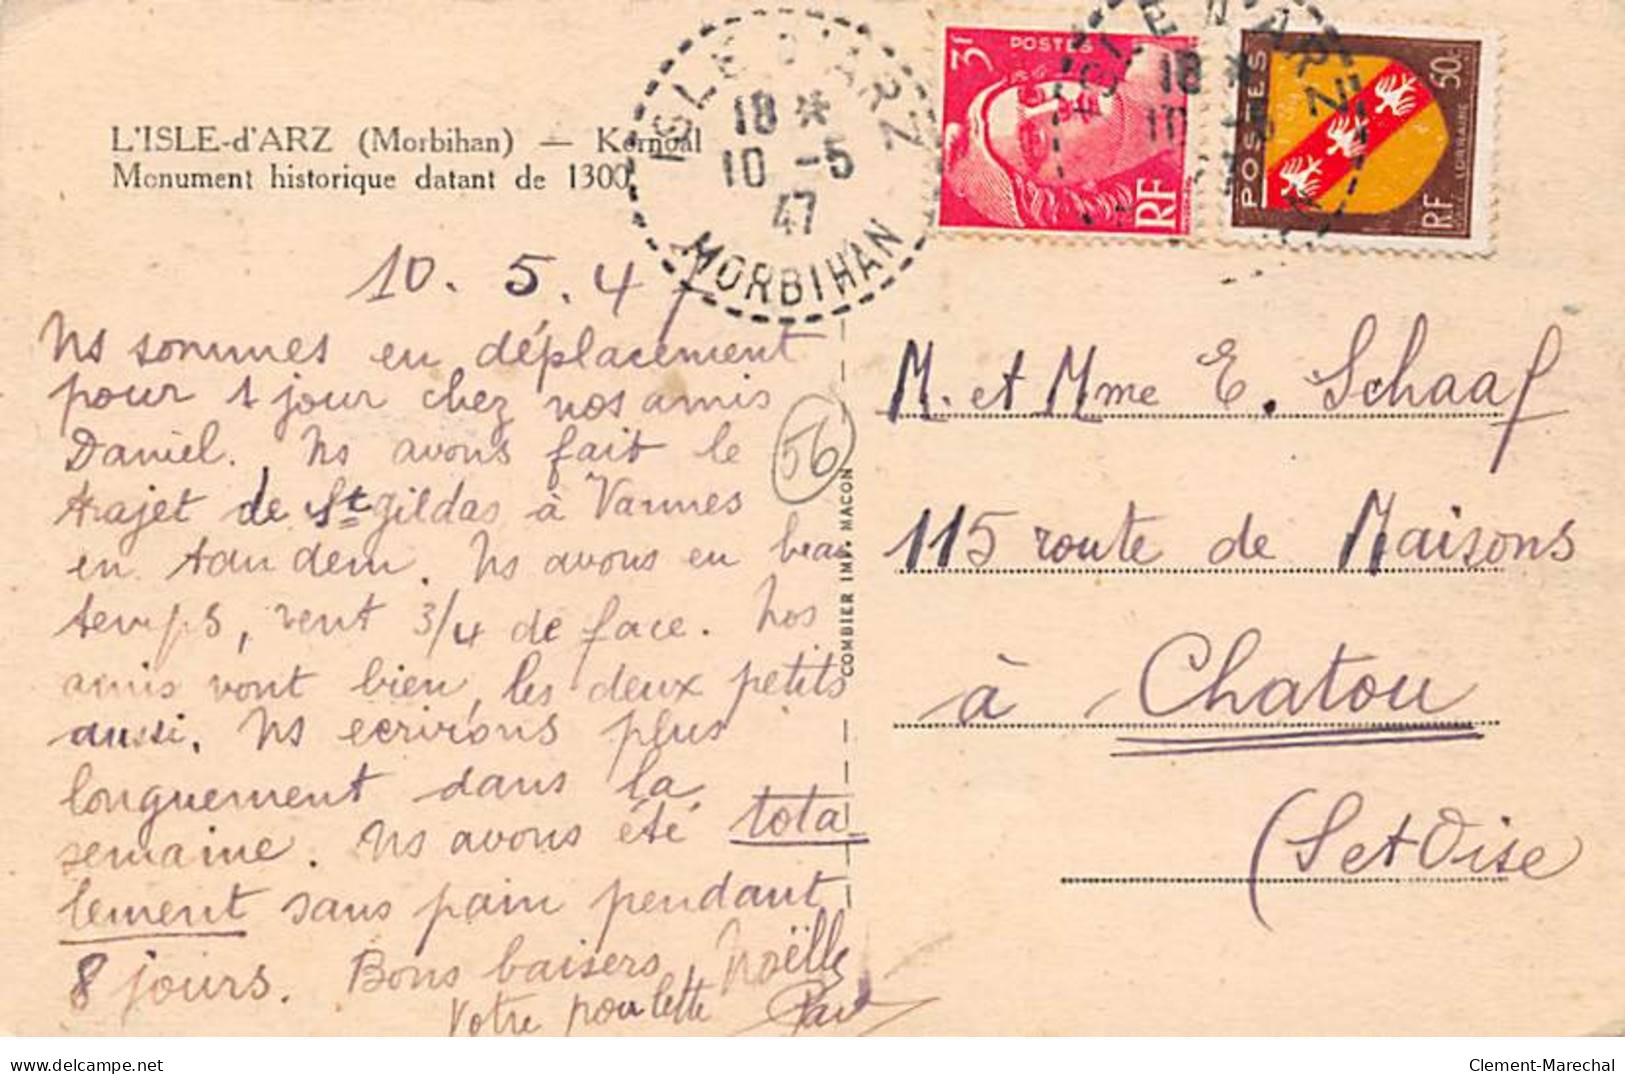 L'ISLE-d'ARZ (Morbihan) — Kernoal
Monument historique datant de 1300
ISLE D'ARZ
18 *
10 -5
47
MORBIHAN
3F
POSTES
RF
POSTES
50c
LORRAINE
RF
18 *
10
10. 5. 47
Ns sommes en déplacement
pour 1 jour chez nos amis
Daniel. Ns avons fait le
trajet de St gildas à Vannes
en tandem. Ns avons eu beau
temps, vent 3/4 de face. Nos
amis vont bien, les deux petits
aussi. Ns ecrirons plus
longuement dans la
semaine. Ns avons été tota-
lement sans pain pendant
8 jours. Bons baisers, Noëlle
Votre poulette
56
COMBIER IMP. MACON
M. et Mme E. Schaaf
115 route de Maisons
à Chatou
(S et Oise)
delcampe.net
Clement-Marechal